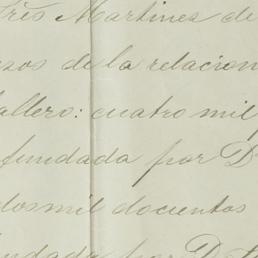 Martines de
de la relacion
allero: cuatro mil
fundada por D
dos mil docientos
por D